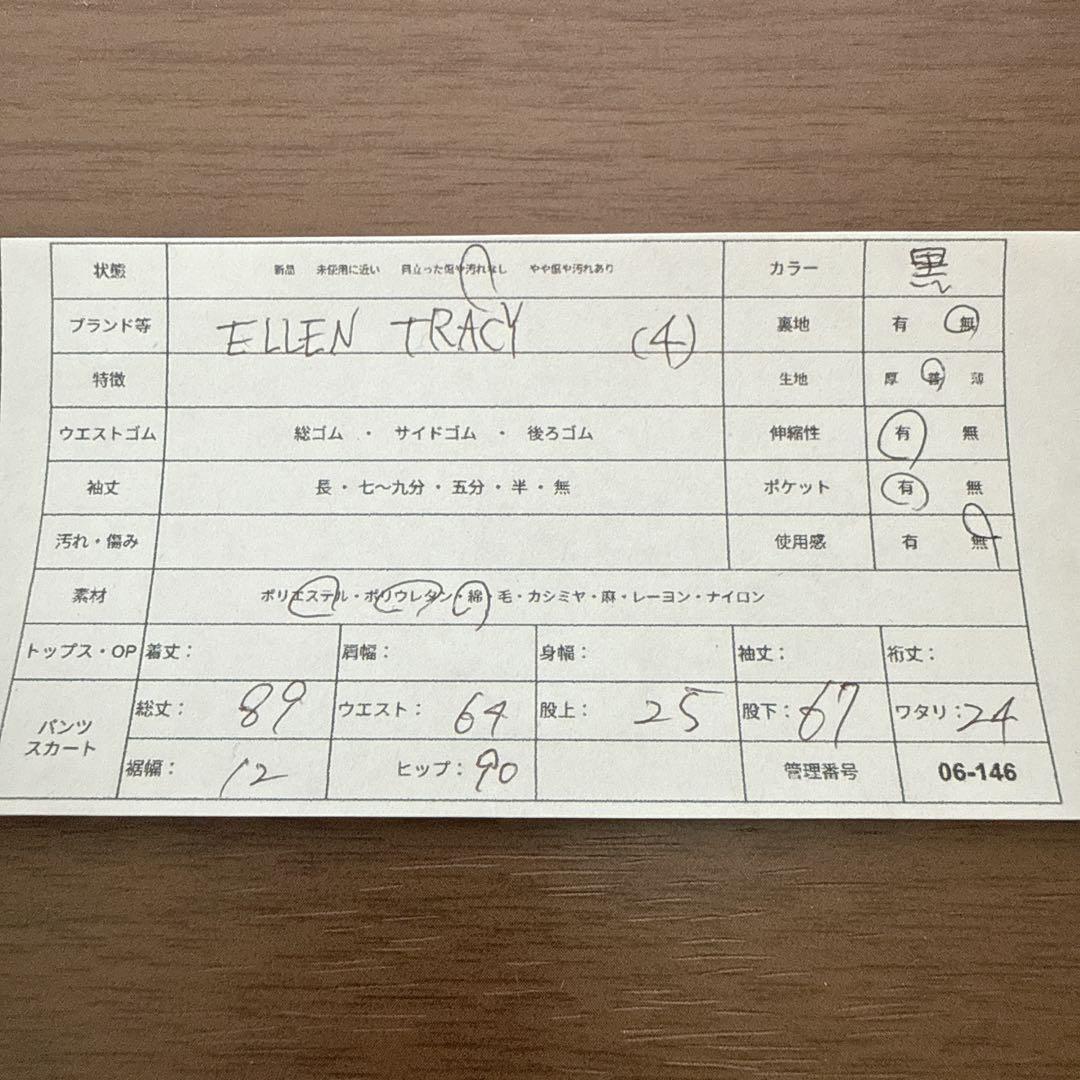 状態 新品 未使用に近い 目立った傷や汚れなし やや傷や汚れあり カラー 黒
ブランド等 ELLEN TRACY (4) 裏地 有 無
特徴 生地 厚 普 薄
ウエストゴム 総ゴム ・ サイドゴム ・ 後ろゴム 伸縮性 有 無
袖丈 長・七〜九分・五分・半・無 ポケット 有 無
汚れ・傷み 使用感 有 無
素材 ポリエステル・ポリウレタン・綿・毛・カシミヤ・麻・レーヨン・ナイロン
トップス・OP 着丈: 肩幅: 身幅: 袖丈: 裄丈:
パンツ
スカート
総丈: 89 ウエスト: 64 股上: 25 股下: 67 ワタリ: 24
裾幅: 12 ヒップ: 90 管理番号 06-146